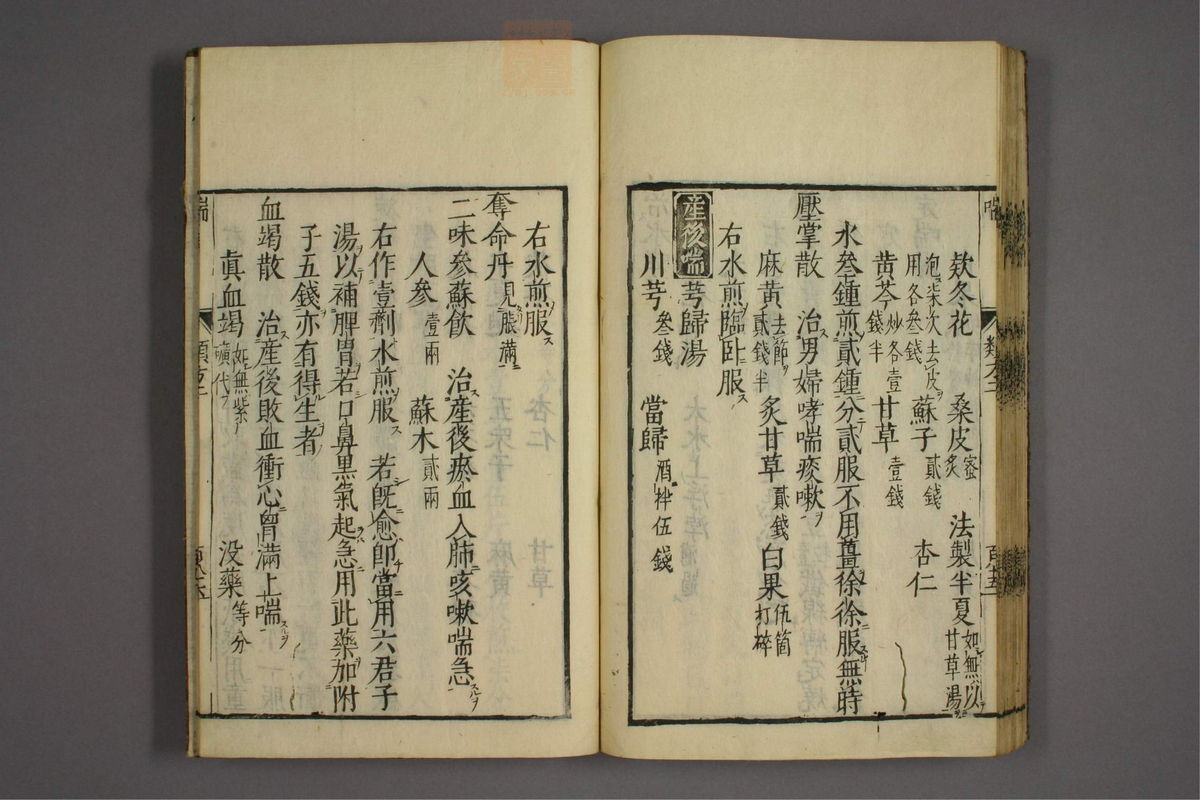 欵冬花 桑皮 蜜炙 法製半夏 如無以甘草湯
泡柒次去皮用各叁錢 蘇子 貳錢 杏仁
黄芩 炒各壹錢半 甘草 壹錢
水叁鍾煎貳鍾分貳服不用薑徐徐服無時
壓掌散 治男婦哮喘痰嗽
麻黄 去節貳錢半 炙甘草 貳錢 白果 伍箇打碎
右水煎臨卧服
産後喘 芎歸湯
川芎 叁錢 當歸 酒拌伍錢
右水煎服
奪命丹 見脹滿
二味參蘇飲 治産後瘀血入肺咳嗽喘急
人參 壹兩 蘇木 貳兩
右作壹劑水煎服 若既愈即當用六君子
湯以補脾胃若口鼻黒氣起急用此藥加附
子五錢亦有得生者
血竭散 治産後敗血衝心胷滿上喘
眞血竭 如無紫礦代 没藥 等分